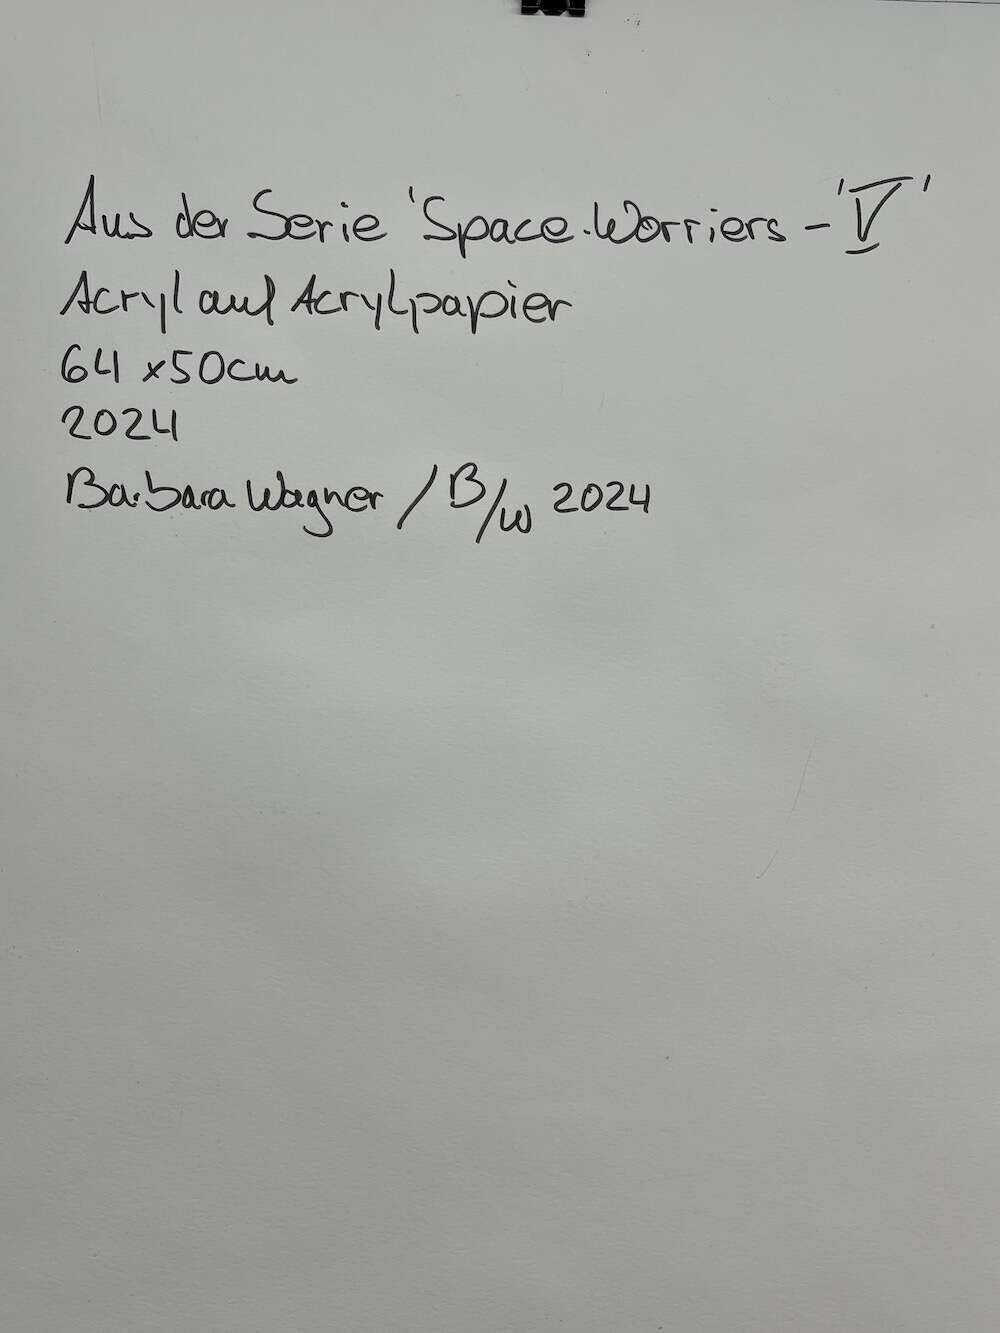 Aus der Serie 'Space-Worriers - 'V'
Acryl auf Acrylpapier
64 x 50cm
2024
Barbara Wagner / B/W 2024